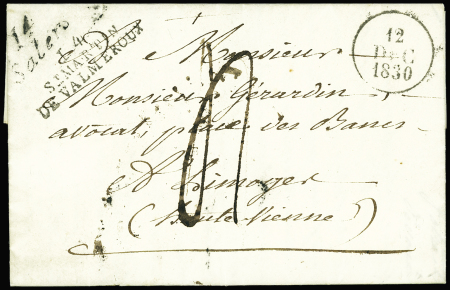 14
Salers
14
ST. MARTIN
DE VALMEROUX
12
DEC
1830
Monsieur
Monsieur Gérardin,
avocat, place des Bancs
A Limoges
(haute Vienne)